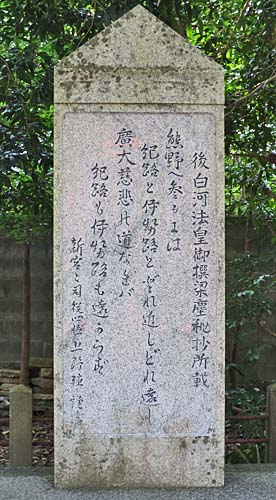 後白河法皇御撰梁塵秘抄所載
熊野へ参るには
紀路と伊勢路とどれ近しどれ遠し
廣大慈悲の道なれバ
紀路も伊勢路も遠からず